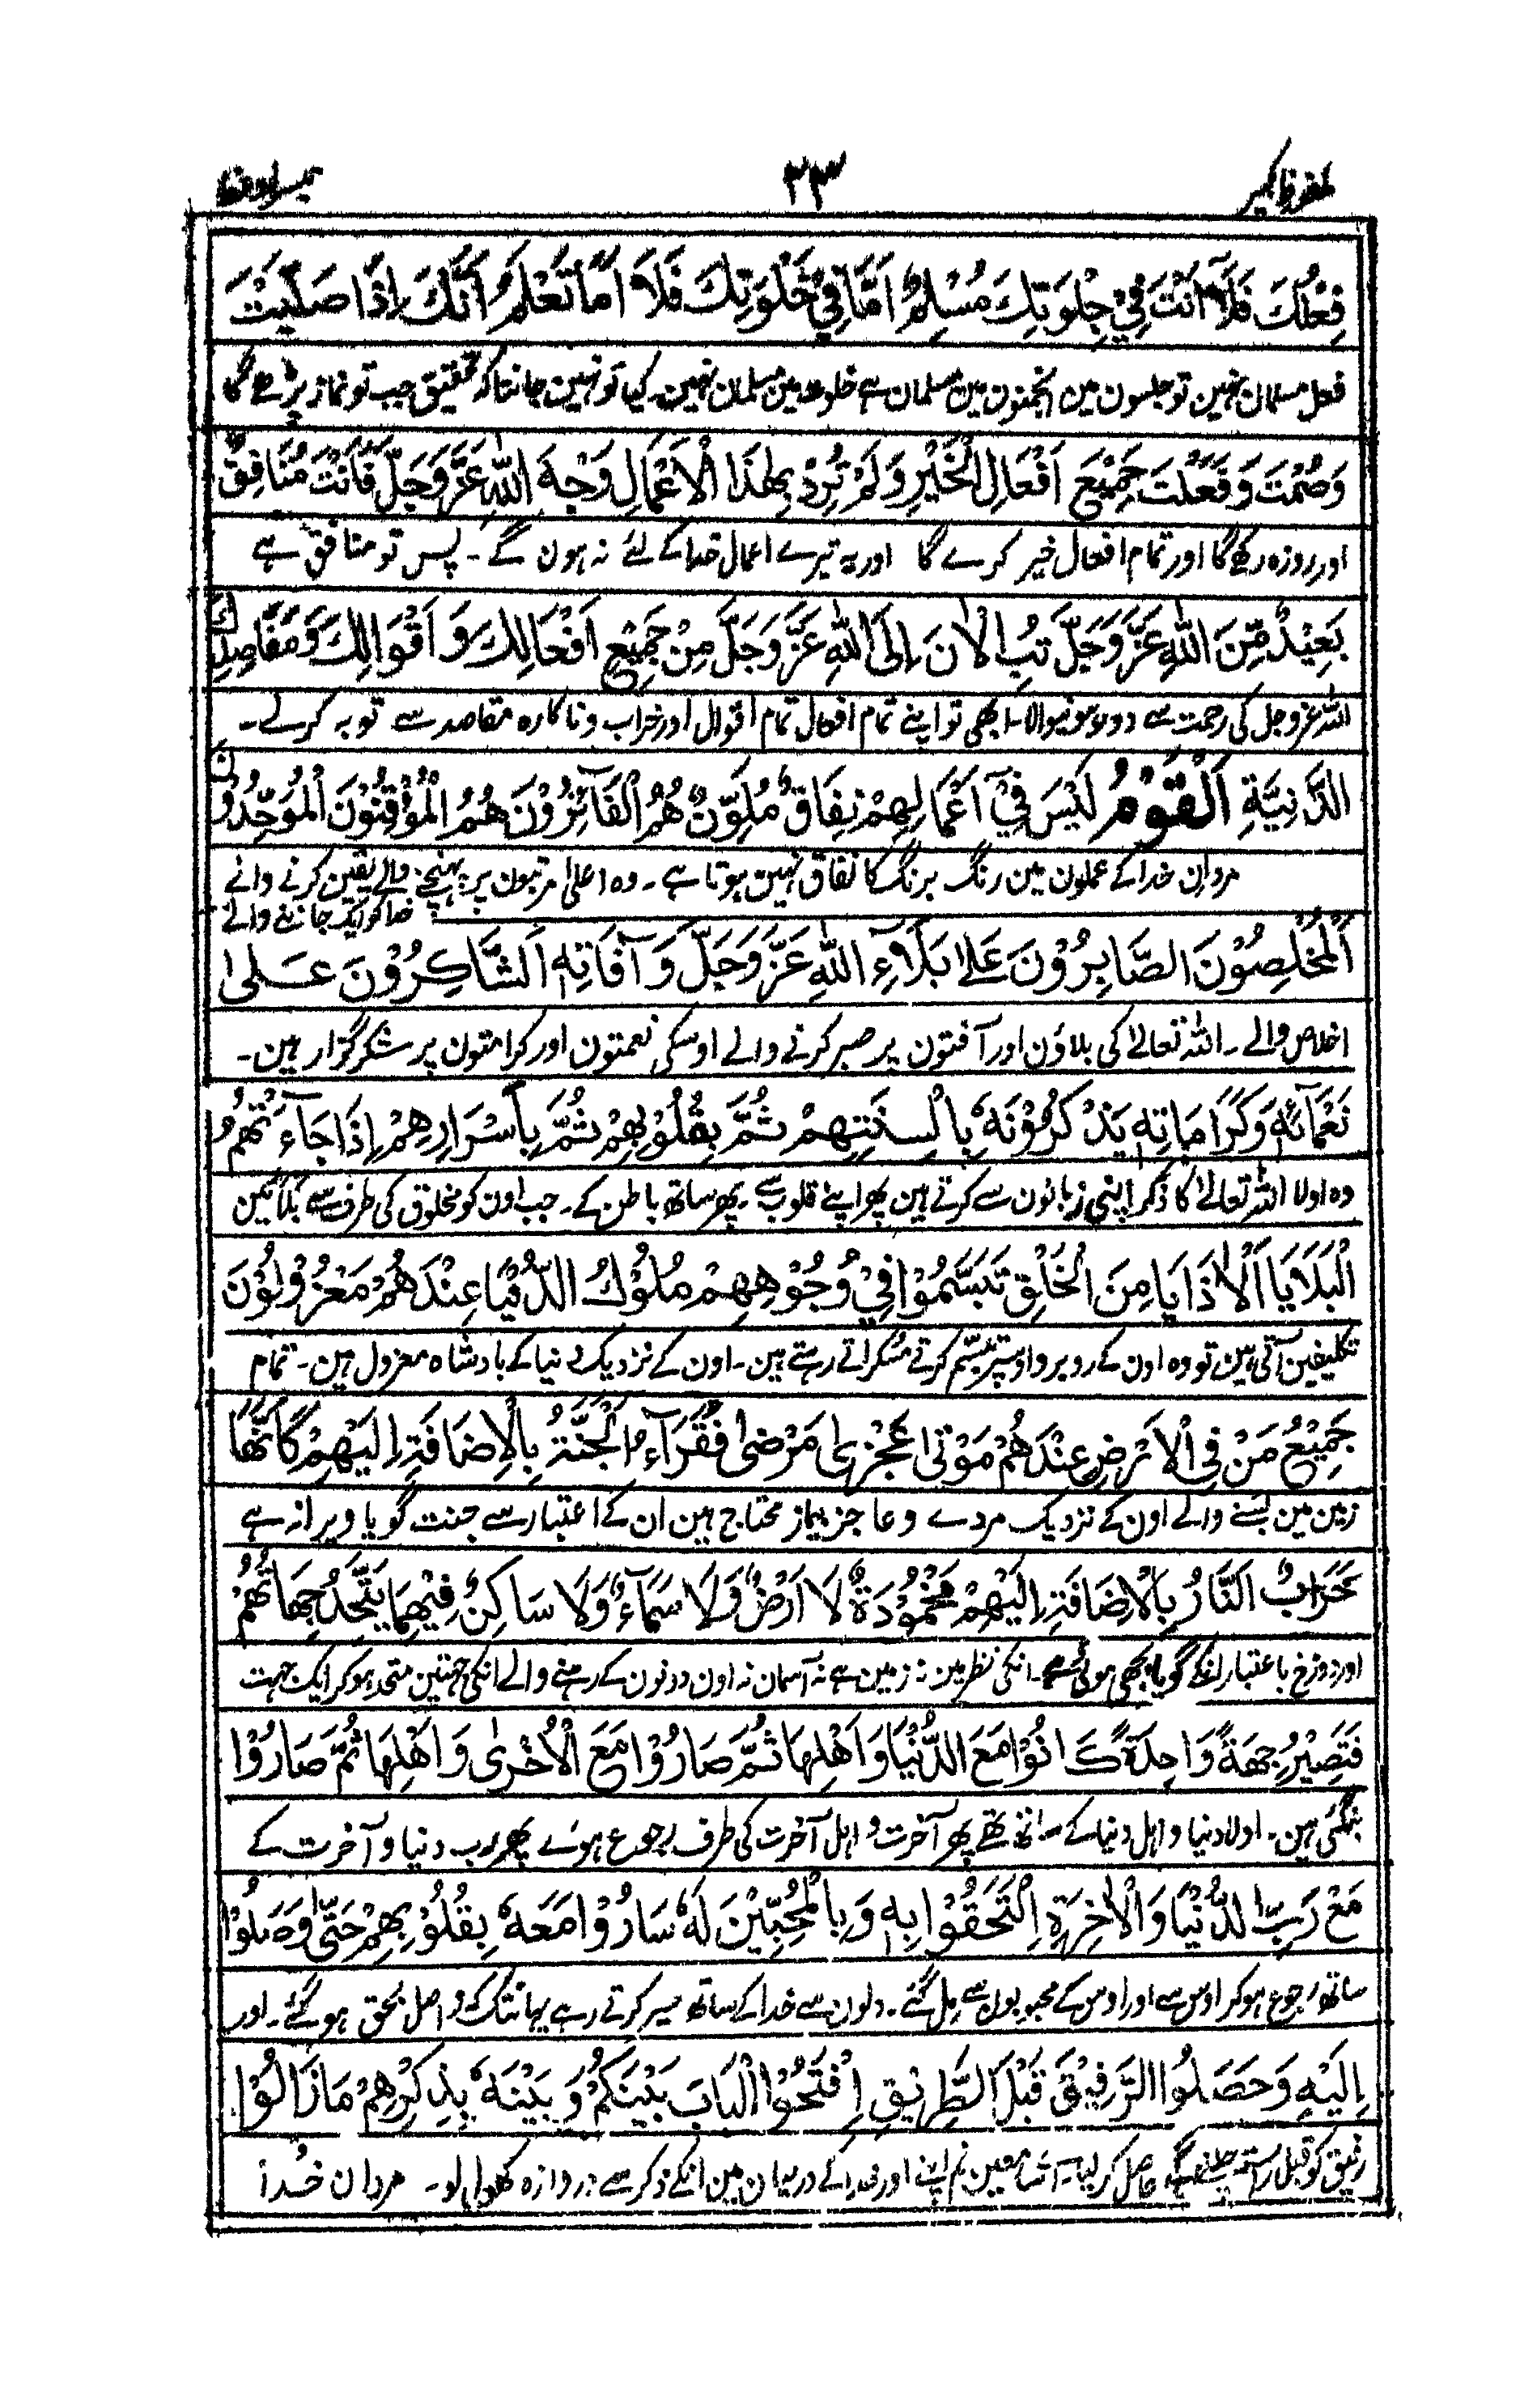 ۳۳
فِعْلُكَ فَلَا اَنْتَ فِيْ جِلْوَتِكَ مُسْلِمٌ اَمَّا فِيْ خَلْوَتِكَ فَلَا اَمَا تَعْلَمُ اَنَّكَ اِذَا صَلَّيْتَ
فعل مسلمان نہین تو جلسون مین انجمنون مین مسلمان ہے خلوت مین مسلمان نہین۔ کیا تو نہین جانتا کہ تحقیق جب تو نماز پڑھے گا
وَصُمْتَ وَفَعَلْتَ جَمِيْعَ اَفْعَالِ الْخَيْرِ وَلَمْ تُرِدْ بِهٰذَا الْاَعْمَالِ وَجْهَ اللّٰهِ عَزَّوَجَلَّ فَاَنْتَ مُنَافِقٌ
اور روزہ رکھے گا اور تمام افعال خیر کرے گا اور یہ تیرے اعمال خدا کے لئے نہ ہون گے۔ پس تو منافق ہے
بَعِيْدٌ مِّنَ اللّٰهِ عَزَّوَجَلَّ تُبِ الْاٰنَ اِلَى اللّٰهِ عَزَّوَجَلَّ مِنْ جَمِيْعِ اَفْعَالِكَ وَاَقْوَالِكَ وَمَقَاصِدِكَ
اللہ عزوجل کی رحمت سے دور ہونیوالا۔ ابھی تو اپنے تمام افعال تمام اقوال اور خراب و ناکارہ مقاصد سے توبہ کر لے۔
الدَّنِيَّةِ اَلْقَوْمُ لَيْسَ فِيْ اَعْمَالِهِمْ نِفَاقٌ مُلَوَّنٌ هُمُ الْفَآئِزُوْنَ هُمُ الْمُؤْقِنُوْنَ الْمُوَحِّدُوْنَ
مردان خدا کے عملون مین رنگ برنگ کا نفاق نہین ہوتا ہے۔ وہ اعلیٰ مرتبون پر پہنچنے والے یقین کرنے والے
خدا کو ایک جاننے والے
اَلْمُخْلِصُوْنَ الصَّابِرُوْنَ عَلٰى بَلَآءِ اللّٰهِ عَزَّوَجَلَّ وَآفَاتِهٖ اَلشَّاكِرُوْنَ عَلٰى
اخلاص والے۔ اللہ تعالےٰ کی بلاؤن اور آفتون پر صبر کرنے والے اوسکی نعمتون اور کرامتون پر شکر گزار ہین۔
نَعْمَآئِهٖ وَكَرَامَاتِهٖ يَذْكُرُوْنَهٗ بِاَلْسِنَتِهِمْ ثُمَّ بِقُلُوْبِهِمْ ثُمَّ بِاَسْرَارِهِمْ اِذَا جَآءَتْهُمُ
وہ اولا اللہ تعالےٰ کا ذکر اپنی زبانون سے کرتے ہین پھر اپنے قلوب سے۔ پھر ساتھ باطن کے۔ جب اون کو مخلوق کی طرف سے بلائین
الْبَلَايَا الْاَذَايَا مِنَ الْخَلْقِ تَبَسَّمُوْا فِيْ وُجُوْهِهِمْ مُلُوْكُ الدُّنْيَا عِنْدَهُمْ مَعْزُوْلُوْنَ
تکلیفین آتی ہین تو وہ اون کے روبرو اوسپر تبسم کرتے مسکراتے رہتے ہین۔ اون کے نزدیک دنیا کے بادشاہ معزول ہین۔ تمام
جَمِيْعُ مَنْ فِى الْاَرْضِ عِنْدَهُمْ مَوْتٰى عَجْزٰى مَرْضٰى فُقَرَآءُ الْجَنَّةُ بِالْاِضَافَةِ اِلَيْهِمْ كَاَنَّهَا
زمین مین بسنے والے اون کے نزدیک مردے و عاجز بیمار محتاج ہین ان کے اعتبار سے جنت گویا ویرانہ ہے
خَرَابٌ اَلنَّارُ بِالْاِضَافَةِ اِلَيْهِمْ مَخْمُوْدَةٌ لَا اَرْضٌ وَلَا سَمَآءٌ وَلَا سَاكِنٌ فِيْهِمَا يَتَّحِدُ جِهَاتُهُمْ
اور دوزخ باعتبار انکے گویا بجھی ہوئی ہے۔ انکی نظر مین نہ زمین ہے نہ آسمان نہ اون دونون کے رہنے والے انکی جہتین متحد ہو کر ایک جہت
فَتَصِيْرُ جِهَةً وَاحِدَةً كَانُوْا مَعَ الدُّنْيَا وَاَهْلِهَا ثُمَّ صَارُوْا مَعَ الْاُخْرٰى وَاَهْلِهَا ثُمَّ صَارُوْا
بنگئی ہین۔ اولا دنیا و اہل دنیا کے ساتھ تھے پھر آخرت و اہل آخرت کی طرف رجوع ہوئے پھر رب دنیا و آخرت کے
مَعْ رَبِّ الدُّنْيَا وَالْاٰخِرَةِ اِلْتَحَقُوْا بِهٖ وَبِالْمُحِبِّيْنَ لَهٗ سَارُوْا مَعَهٗ بِقُلُوْبِهِمْ حَتّٰى وَصَلُوْا
ساتھ رجوع ہو کر اوس سے اور اوس کے محبوبون سے مل گئے۔ دلون سے خدا کے ساتھ سیر کرتے رہے یہانتک کہ واصل بحق ہو گئے۔ اور
اِلَيْهِ وَحَصَلُوا الرَّفِيْقَ قَبْلَ الطَّرِيْقِ اِفْتَحُوْا الْبَابَ بَيْنَكُمْ وَبَيْنَهٗ بِذِكْرِهِمْ مَا زَالُوْا
رفیق کو قبل راستہ چلنے کے حاصل کر لیا۔ تم اپنے اور خدا کے درمیان مین انکے ذکر سے دروازہ کھول لو۔ مردان خدا